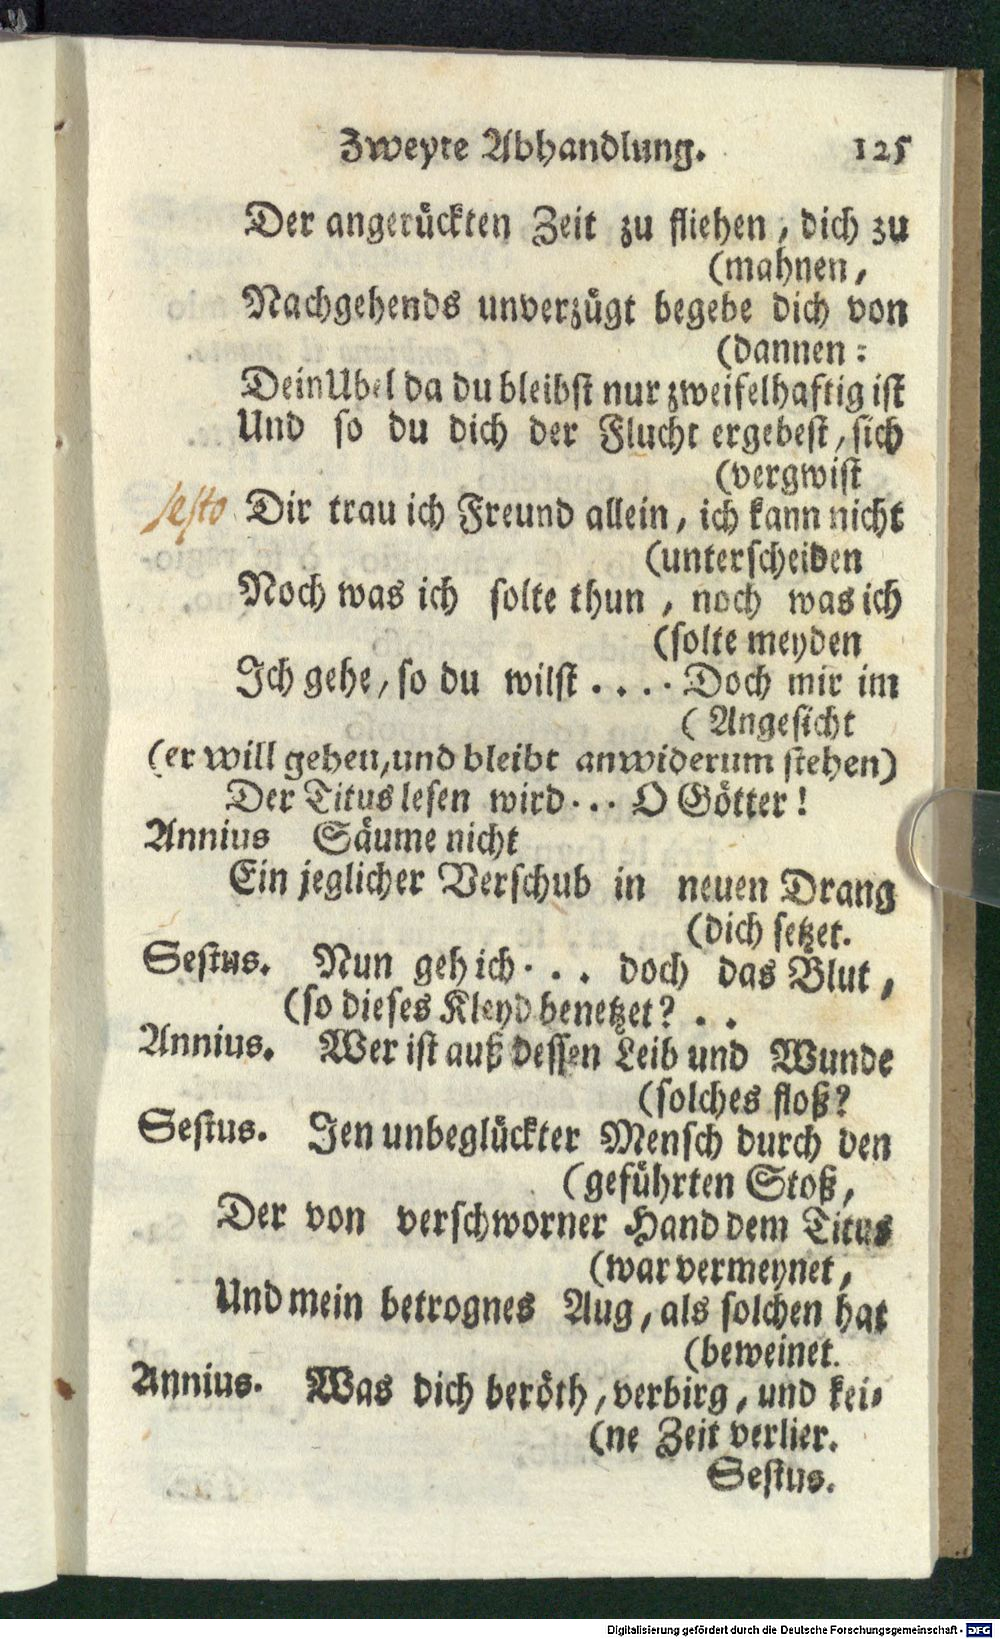 Zweyte Abhandlung. 125
Der angerückten Zeit zu fliehen, dich zu
(mahnen,
Nachgehends unverzügt begebe dich von
(dannen:
Dein Ubel da du bleibst nur zweifelhaftig ist
Und so du dich der Flucht ergebest, sich
(vergwist
Sesto Dir trau ich Freund allein, ich kann nicht
(unterscheiden
Noch was ich solte thun, noch was ich
(solte meyden
Ich gehe, so du wilst .... Doch mir im
(Angesicht
(er will gehen, und bleibt anwiderum stehen)
Der Titus lesen wird... O Götter!
Annius Säume nicht
Ein jeglicher Verschub in neuen Drang
(dich setzet.
Sestus. Nun geh ich... doch das Blut,
(so dieses Kleyd benetzet? ..
Annius. Wer ist auß dessen Leib und Wunde
(solches floß?
Sestus. Jen unbeglückter Mensch durch den
(geführten Stoß,
Der von verschworner Hand dem Titus
(war vermeynet,
Und mein betrognes Aug, als solchen hat
(beweinet.
Annius. Was dich beröth, verbirg, und kei-
(ne Zeit verlier.
Sestus.
Digitalisierung gefördert durch die Deutsche Forschungsgemeinschaft - DFG